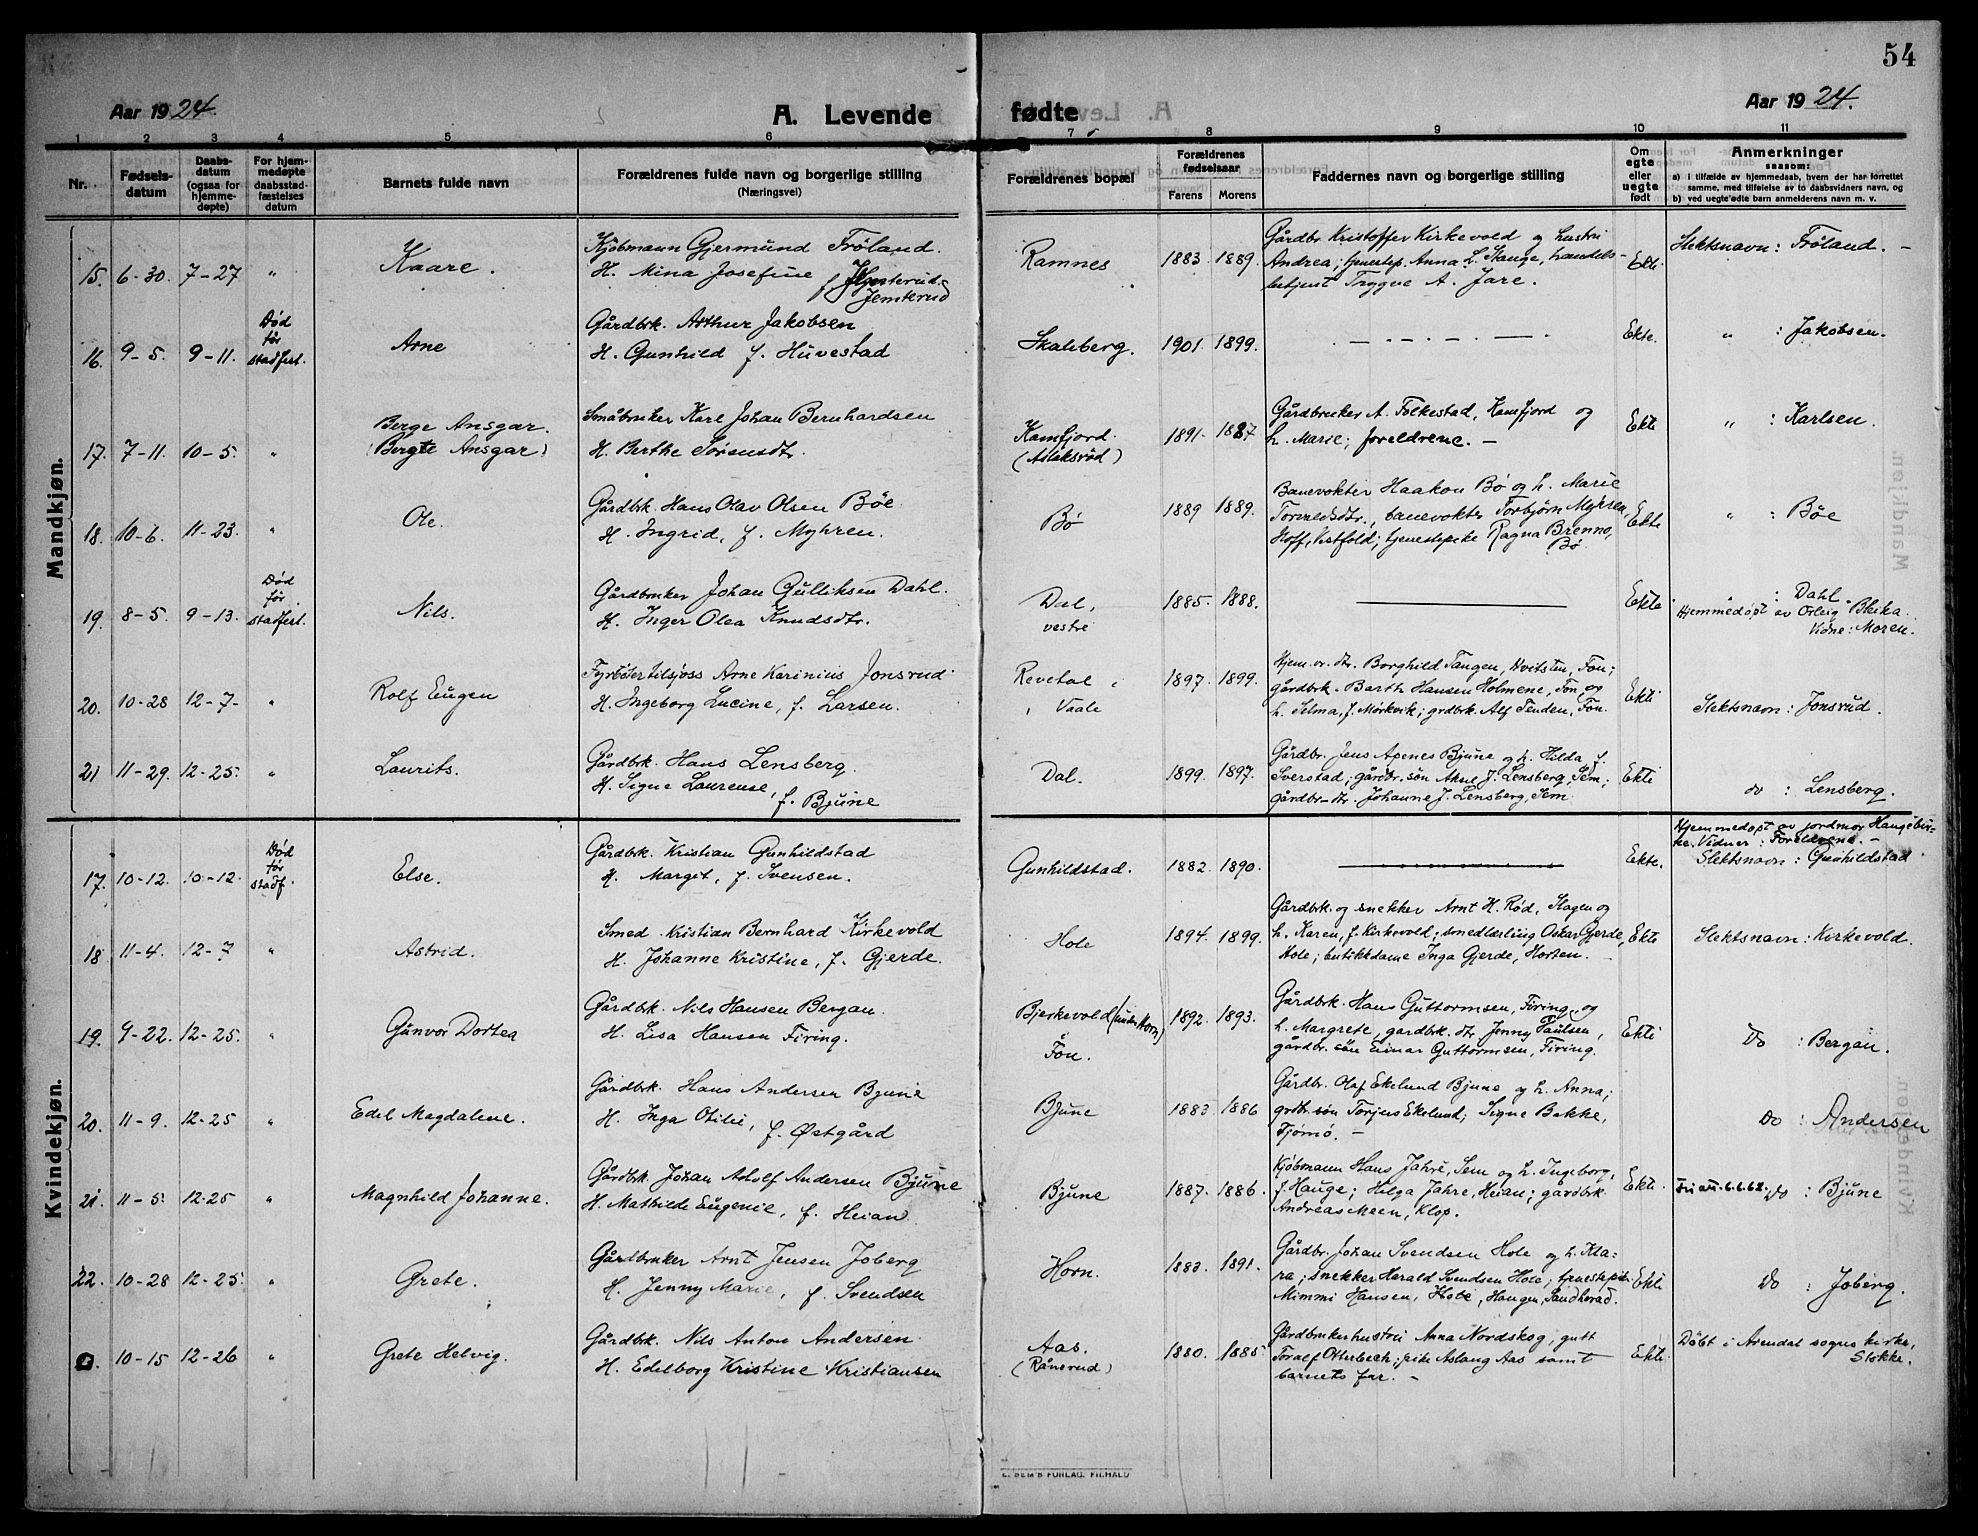 54
Aar 1924.
A. Levende
fødte
Aar 1924.
1 2 3 4 5 6 7 8 9 10 11
Nr.
Fødsels-
datum
Daabs-
datum
(ogsaa for
hjemme-
døpte)
For hjem-
medøpte
daabsstad-
fæstelses
datum
Barnets fulde navn
Forældrenes fulde navn og borgerlige stilling
(Næringsvei)
Forældrenes bopæl
Forældrenes
fødselsaar
Farens Morens
Faddernes navn og borgerlige stilling
Om
egte
eller
uegte
født
Anmerkninger
saasom:
a) i tilfælde av hjemmedaab, hvem der har forrettet
samme, med tilføielse av to daabsvidners navn, og
b) ved uegte fødte barn anmelderens navn m. v.
Mandkjøn.
15. 6-30. 7-27 "
Kaare.
Kjøbmann Gjermund Frøland.
H. Mina Josefine f.
Jemterud
Ramnes
1883. 1889.
Gårdbr. Kristoffer Kirkevold og hustri
Andrea; tjenestep. Anna L. Stange, handels-
betjent Trygve A. Jare.
Ekte.
Slektsnavn: Frøland. -
16. 9-5. 9-11.
Død
før
stadfest.
Arne
Gårdbrk. Arthur Jakobsen
H. Gunhild f. Huvestad
Skaleberg.
1901. 1899.
Ekte.
" : Jakobsen.
17. 7-11. 10-5. "
Berge Ansgar.
(Bergte Ansgar)
Småbruker Karl Johan Bernhardsen
H. Berthe Sørensdtr.
Kamfjord.
(Aslaksrød)
1891. 1887
Gårdbruker A. Folkestad, Kamfjord og
h. Marie; foreldrene. -
Ekte
" : Karlsen.
18. 10-6. 11-23. "
Ole.
Gårdbrk. Hans Olav Olsen Bøe
H. Ingrid, f. Myhren.
Bø
1889 1889.
Banevokter Haakon Bø og h. Marie
banevokter Torbjørn Myhsen,
Hoff, Vestfold; tjenestepike Ragna Brenno,
Bø
Ekte
" : Bøe
19. 8-5. 9-13.
Død
før
stadfest.
Nils.
Gårdbruker Johan Gulliksen Dahl.
H. Inger Olea Knudsdtr.
Dal,
vestre
1885. 1888.
Ekte
" : Dahl.
Hjemmedøpt av Bleika.
Vidne: Moren.
20. 10-28 12-7- "
Rolf Eugen
Fyrbøter tilsjøss Arne Karinius Jonsrud
H. Ingeborg Lucine, f. Larsen.
Revetal i
Vaale
1897. 1899.
Hjem. v. dtr. Borghild Tangen, Hvitsten, Fon;
gårdbrk. Barth Hansen Holmene, Fon og
h. Selma, f. Mørkvik; grdbrk. Alf Tenden, Fon.
Ekte
Slektsnavn: Jonsrud.
21 11-29. 12-25. "
Laurits.
Gårdbrk. Hans Lensberg.
H. Signe Laurense,
f. Bjune
Dal.
1899. 1897.
Gårdbr. Jens Apenes Bjune og h. Hilda f.
Sverstad; gårdbr. søn J. Lensberg, Sem;
gårdbr-dtr. Johanne J. Lensberg, Sem
Ekte
do : Lensberg.
Kvindekjøn.
17. 10-12. 10-12.
Død
før
stadf.
Else.
Gårdbrk. Kristian Gunhildstad
H. Marget, f. Svensen.
Gunhildstad.
1882. 1890.
Ekte.
Hjemmedøpt av jordmor Haugebir-
ke. Vidner: Foreldrene. -
Slektsnavn: Gunhildstad
18 11-4. 12-7 "
Astrid.
Smed Kristian Bernhard Kirkevold
H. Johanne Kristine, f. Gjerde.
Hole
1894. 1899.
Gårdbrk. og snekker Arnt H. Rød, Slagen og
h. Karen, f. Kirkevold; smedlærling Oskar Gjerde,
Hole; butikkdame Inga Gjerde, Horten.
Ekte
Slektsnavn: Kirkevold.
19. 9-22. 12-25. "
Gunvor Dortea
Gårdbrk. Nils Hansen Bergan.
H. Lisa Hansen Firing.
Bjerkevold (under Horn)
Fon.
1892. 1893.
Gårdbrk. Hans Guttormsen, Firing, og
h. Margrete, gårdbrk. dtr. Jenny Paulsen,
gårdbr. søn Einar Guttormsen, Firing.
Ekte
Do : Bergan.
20. 11-9. 12-25 "
Edel Magdalene.
Gårdbrk. Hans Andersen Bjune
H. Inga Otilie, f. Østgård
Bjune
1883. 1886
Gårdbr. Olaf Ekelund Bjune og h. Anna;
grdbr. søn Torjus Ekelund; Signe Bakke,
Tjømø. -
Do : Andersen
21. 11-5. 12-25 "
Magnhild Johanne.
Gårdbrk. Johan Adolf Andersen Bjune
H. Mathilde Eugenie, f. Heian
Bjune
1887. 1886.
Kjøbmann Hans Jahre, Sem og h. Ingeborg,
f. Hauge; Helga Jahre, Heian; gårdbrk.
Andreas Meen, Klop.
Ekte.
6.6.62. do : Bjune
22. 10-28 12-25. "
Grete.
Gårdbruker Arnt Jensen Joberg
H. Jenny Marie, f. Svendsen
Horn.
1883. 1891.
Gårdbr. Johan Svendsen Hole og h. Kla-
ra; snekker Harald Svendsen Hole; tjenestepike
Mimmi Hansen, Hole, Haugen, Sandherad.
Ekte
Do : Joberg.
10-15 12-26 "
Grete Helvig.
Gårdbrk. Nils Anton Andersen
H. Edelborg Kristine Kristiansen
Aas.
(Rånerud)
1880. 1885
Gårdbrukerhustru Anna Nordskog; gutt
Toralf Otterbech; pike Aslaug Aas samt
barnets far. -
Ekte
Døbt i Arendal sogns kirke,
Stokke.
E. SEM'S FORLAG, FR.HALD